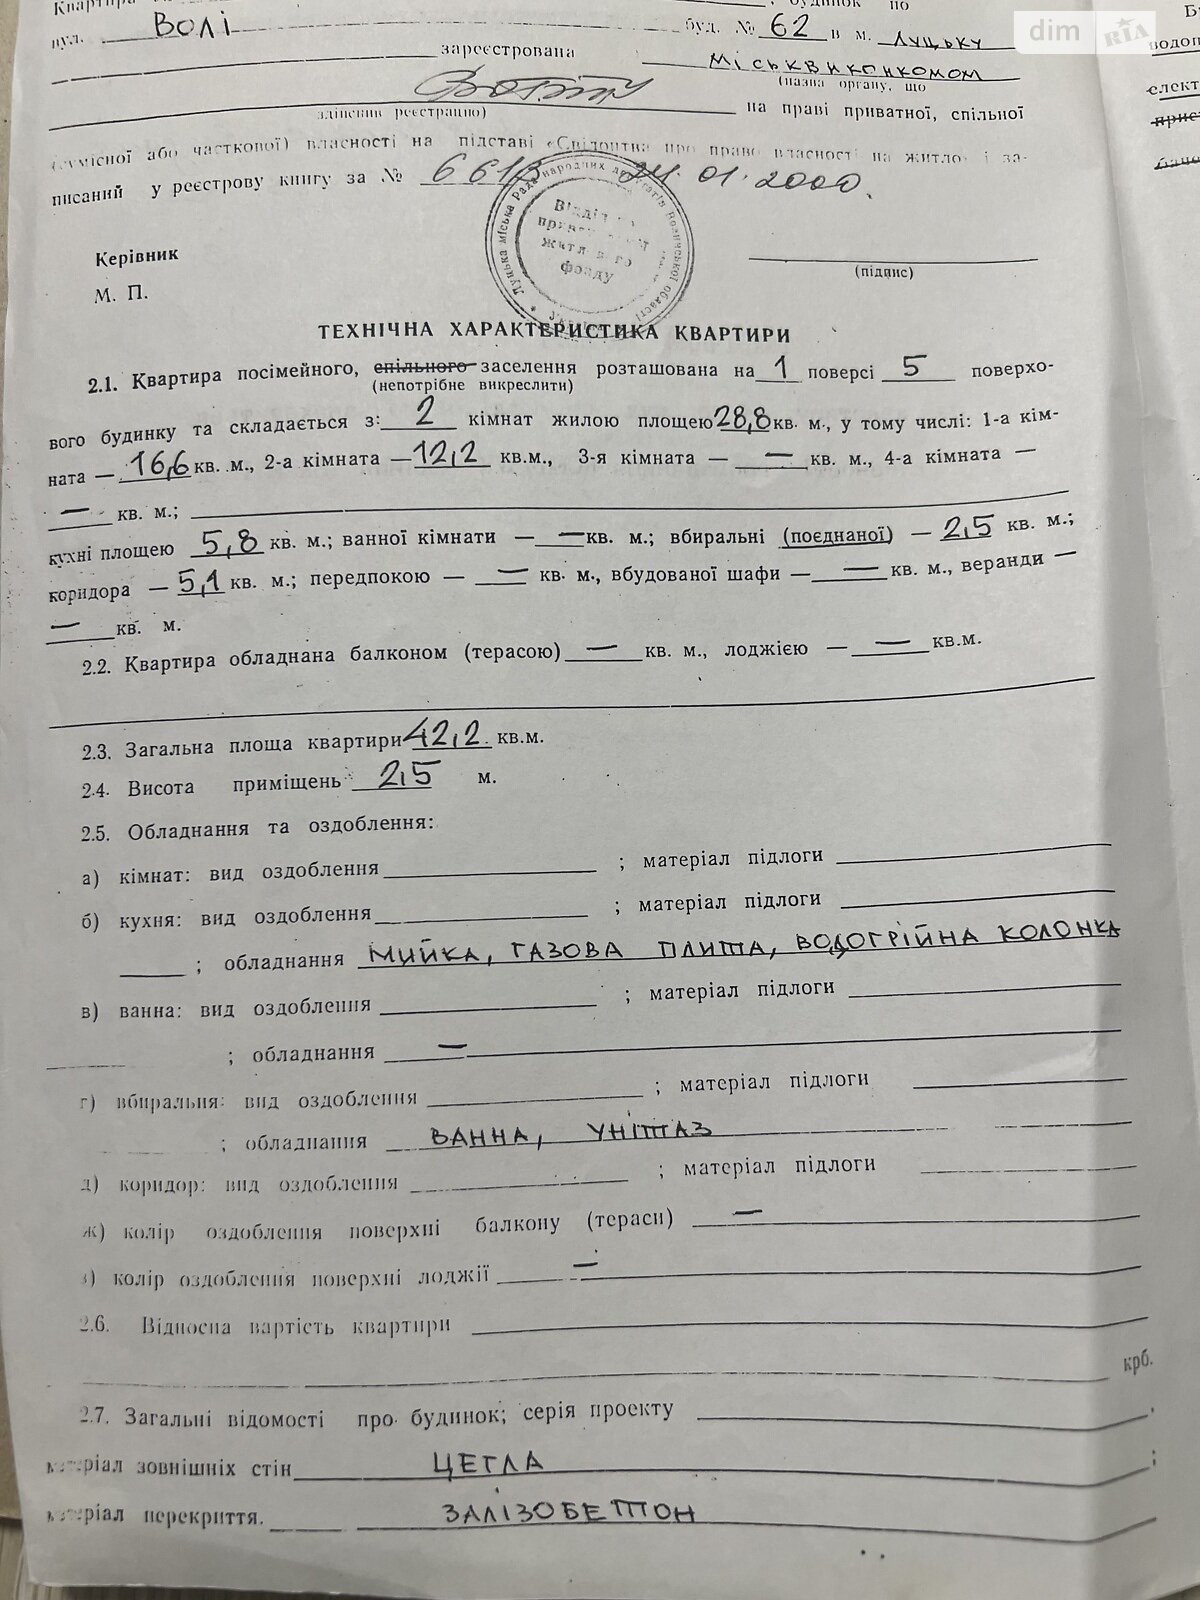 Квартира № , будинок по
вул. Волі буд. № 62 в м. Луцьку
зареєстрована міськвиконкомом
(назва органу, що
здійснив реєстрацію) на праві приватної, спільної
(сумісної або часткової) власності на підставі «Свідоцтва про право власності на житло» і за-
писаний у реєстрову книгу за № 6613 24.01.2000.
Керівник
(підпис)
М. П.
Луцька міська Рада народних депутатів Волинської області
житлового
фонду
ТЕХНІЧНА ХАРАКТЕРИСТИКА КВАРТИРИ
2.1. Квартира посімейного, спільного заселення розташована на 1 поверсі 5 поверхо-
(непотрібне викреслити)
вого будинку та складається з: 2 кімнат жилою площею 28,8 кв. м., у тому числі: 1-а кім-
ната — 16,6 кв. м., 2-а кімната — 12,2 кв.м., 3-я кімната — — кв. м., 4-а кімната —
— кв. м.;
кухні площею 5,8 кв. м.; ванної кімнати — — кв. м.; вбиральні (поєднаної) — 2,5 кв. м.;
коридора — 5,1 кв. м.; передпокою — — кв. м., вбудованої шафи — — кв. м., веранди —
— кв. м.
2.2. Квартира обладнана балконом (терасою) — кв. м., лоджією — — кв.м.
2.3. Загальна площа квартири 42,2 кв.м.
2.4. Висота приміщень 2,5 м.
2.5. Обладнання та оздоблення:
а) кімнат: вид оздоблення ; матеріал підлоги
б) кухня: вид оздоблення ; матеріал підлоги
; обладнання мийка, газова плита, водогрійна колонка
в) ванна: вид оздоблення ; матеріал підлоги
; обладнання —
г) вбиральня: вид оздоблення ; матеріал підлоги
; обладнання ванна, унітаз
д) коридор: вид оздоблення ; матеріал підлоги
ж) колір оздоблення поверхні балкону (тераси) —
з) колір оздоблення поверхні лоджії —
2.6. Відносна вартість квартири
крб.
2.7. Загальні відомості про будинок; серія проекту
матеріал зовнішніх стін цегла ;
матеріал перекриття. залізобетон
водоп
елект
dim RIA